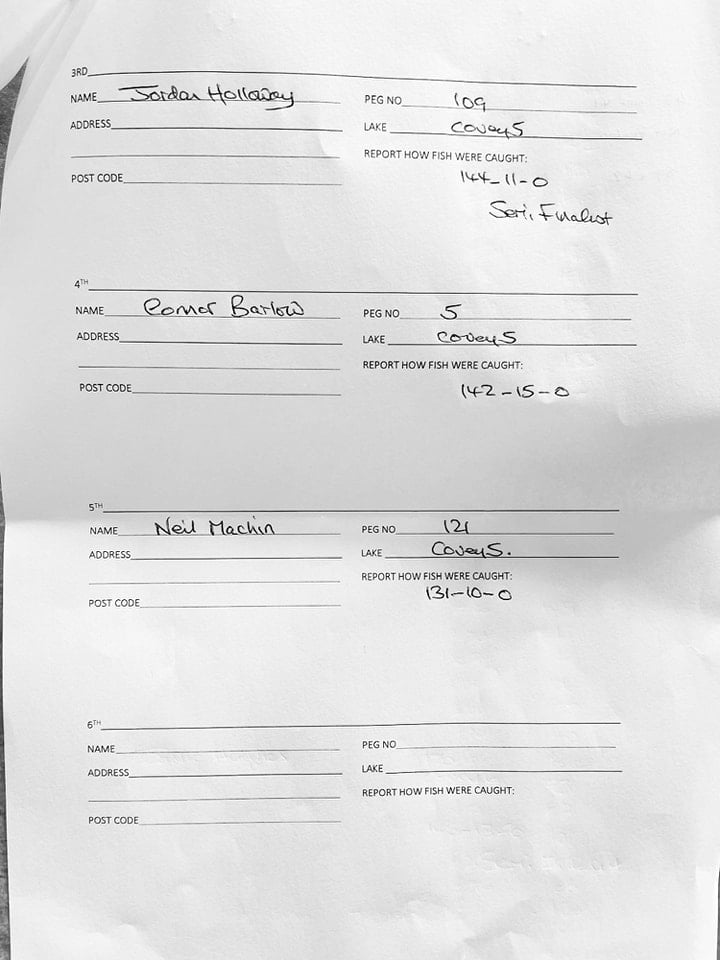 3RD
NAME Jordan Holloway PEG NO 109
ADDRESS LAKE Coveys
REPORT HOW FISH WERE CAUGHT:
POST CODE 144-11-0
Semi, Finalist
4TH
NAME Connor Barlow PEG NO 5
ADDRESS LAKE Coveys
REPORT HOW FISH WERE CAUGHT:
POST CODE 142-15-0
5TH
NAME Neil Machin PEG NO 121
ADDRESS LAKE Coveys.
REPORT HOW FISH WERE CAUGHT:
POST CODE 131-10-0
6TH
NAME PEG NO
ADDRESS LAKE
REPORT HOW FISH WERE CAUGHT:
POST CODE